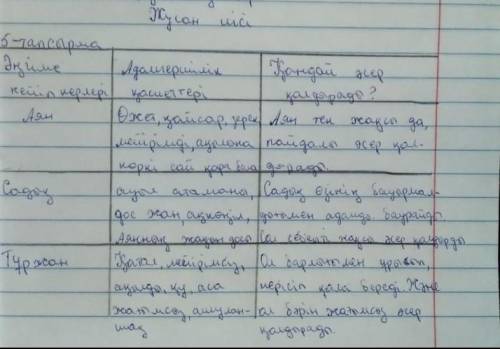 Жусан иісі
5-тапсырма
Әңгіме кейіпкерлері
Адамгершілік қасиеттері
Қандай әсер қалдырады?
Аян
Өжет, қайсар, зерек,
мейірімді, ақылына
көркі сай қара бала
Аян тек жақсы да,
пайдалы әсер қал-
дырады.
Садық
ауыл атаманы,
дос жан, ақкөңіл,
Аянның жақын досы
Садық өзінің бауырмал-
дығымен адамды баурайды.
Сол себепті жақсы әсер қалдырды
Тұржан
Қатал, мейірімсіз,
ақылды, қу, аса
жағымсыз, ашулан-
шақ
Ол барлығымен ұрысып,
керісіп қала береді. Және
ол бәрін жағымсыз әсер
қалдырады.